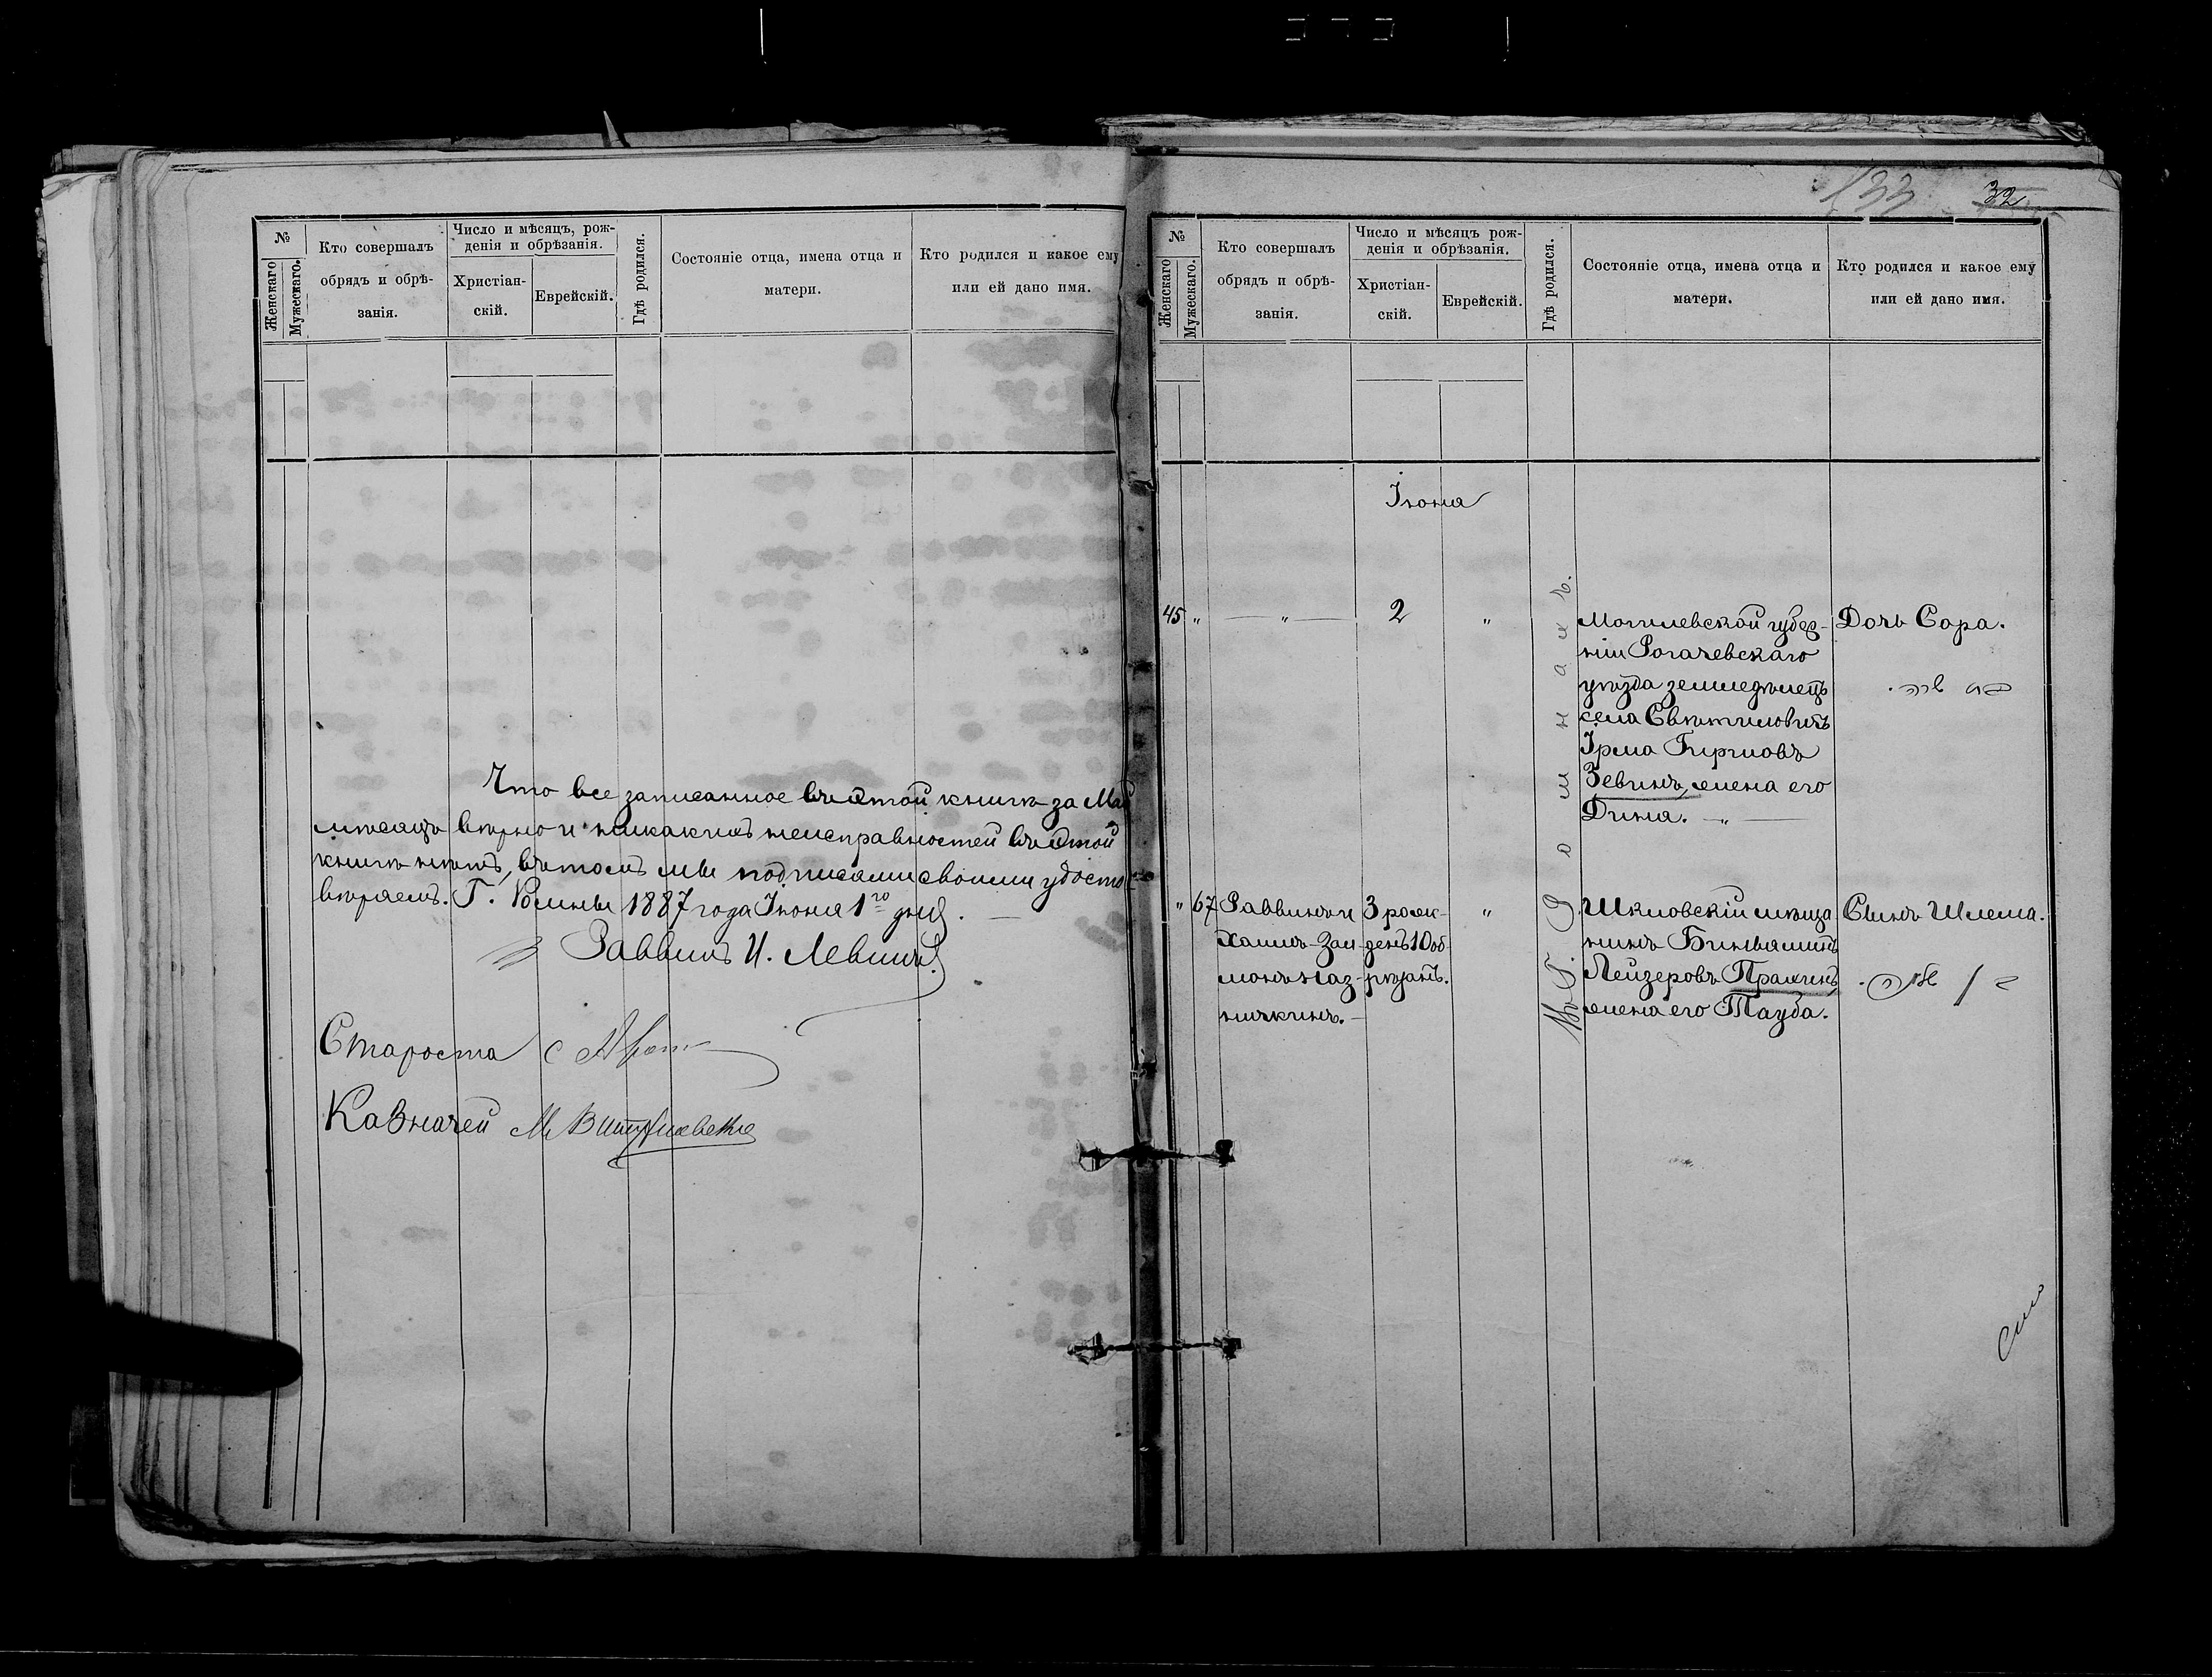 №
Женскаго
Мужескаго.
Кто совершалъ
обрядъ и обрѣ-
занія.
Число и мѣсяцъ, рож-
денія и обрѣзанія.
Христіан-
скій.
Еврейскій.
Гдѣ родился.
Состояніе отца, имена отца и
матери.
Кто родился и какое ему
или ей дано имя.
Что все записанное въ этой книгѣ за Май
мѣсяцъ вѣрно и никакихъ неисправностей въ этой
книгѣ нѣтъ, въ томъ мы подписами своими удосто-
вѣряемъ. Г. Ромны 1887 года Іюня 1го дня.
Раввинъ И. Левинъ
Староста
Казначей М
32
№
Женскаго
Мужескаго.
Кто совершалъ
обрядъ и обрѣ-
занія.
Число и мѣсяцъ рож-
денія и обрѣзанія.
Христіан-
скій.
Еврейскій.
Гдѣ родился.
Состояніе отца, имена отца и
матери.
Кто родился и какое ему
или ей дано имя.
Іюня
45 " — " — 2 "
Могилевской губер-
ніи Рогачевскаго
уѣзда земледѣлецъ
села Свѣтиловичъ
Зевинъ, жена его
Дина. — " —
Дочь Сора.
שרה
" 67 Раввинъ и 3 рож- "
Хаимъ-Зал- денъ 10 об-
монъ Раз- рѣзанъ.
Шкловскій мѣща-
нинъ Биньяминъ
Лейзеровъ Пражинъ,
жена его Тауба.
Сынъ Шлема.
Въ Г. Ромнахъ.